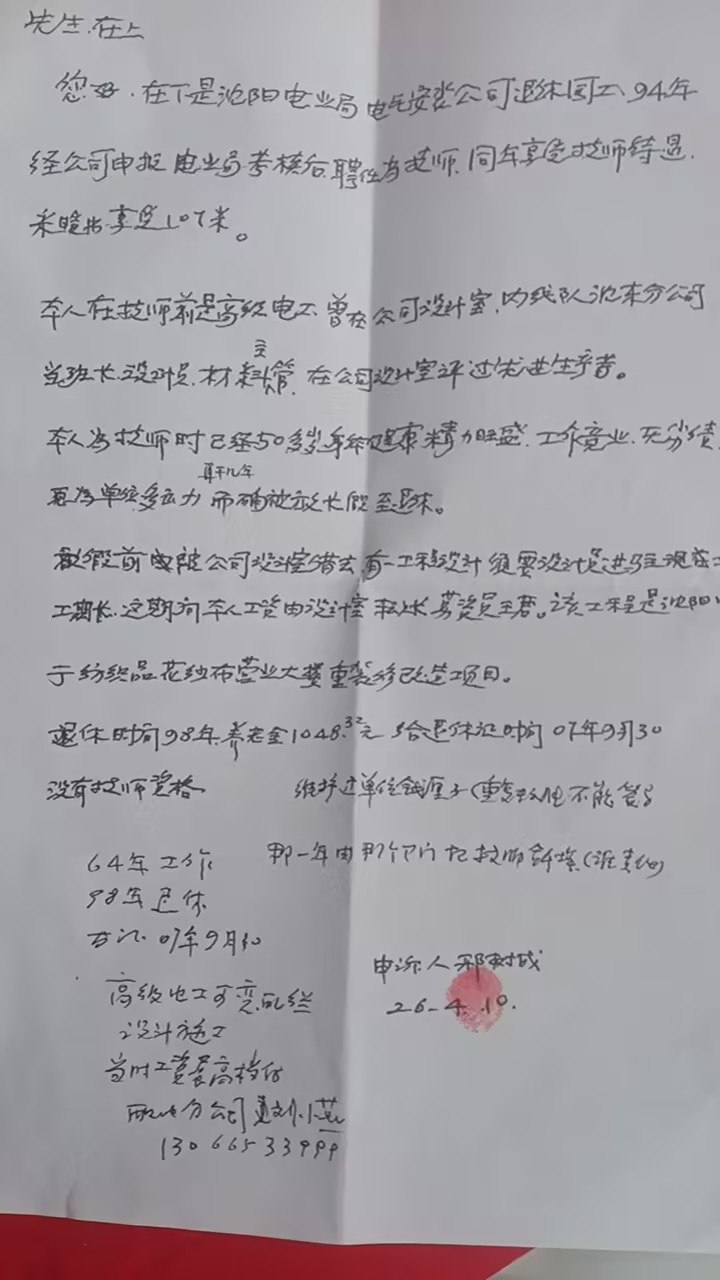 先生.在上
您好.在下是沈阳电业局电气安装公司退休闰工、94年
经公司申报 电业局考核后聘任为技师.同年享受技师待遇.
采暖为享受107米。
本人在技师前是高级电工 曾在公司设计室.内线队沈东分公司
当班长.设计员.材料主管.在公司设计室评过先进生产者。
本人当技师时已经50多岁身体健康精力旺盛.工作竞业.
再干几年
为单位多立力 而确被放长假至退休。
放假前 被公司设计室借去.有一工程设计 须要设计员进驻现在工
工期长.这期间本人工资由设计室 该工程是沈阳
于纺织品花纱布营业大楼重装修改造项目。
退休时间98年.养老金1048.32元 给退休证时间 07年9月30
没有技师资格 维护过单位
64年工作 那一年由那个部门把技师
98年退休
07年9月30
申诉人 邢树成
26-4.10.
高级电工可变
设计施工
当时工资最高档
配电分公司
13066533999